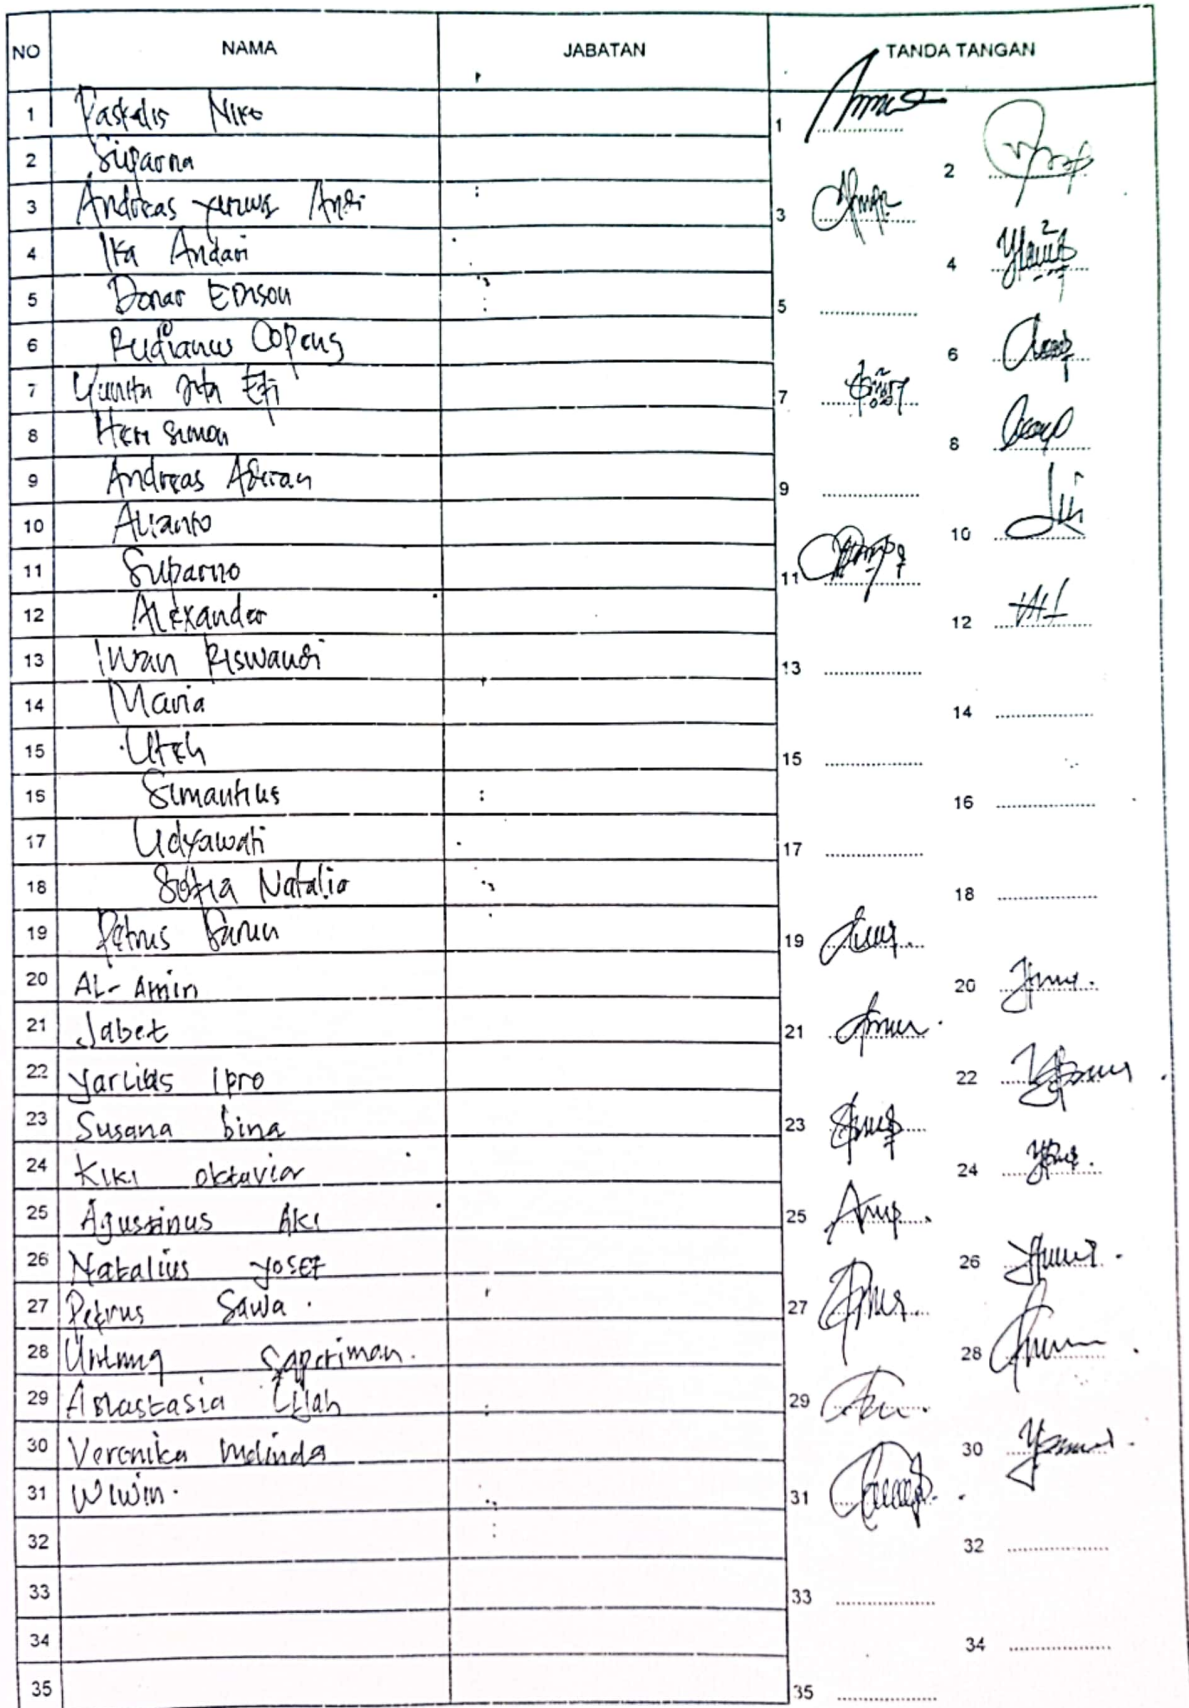 NO NAMA JABATAN TANDA TANGAN
1 Paskalis Niko 1
2 Suparna 2
3 Andreas Yunus Andi 3
4 Ika Andari 4
5 Donar Edison 5
6 Rudianus Copeng 6
7 Yunita Efi 7
8 Heri Simon 8
9 Andreas Adiran 9
10 Alianto 10
11 Suparno 11
12 Alexander 12
13 Iwan Riswandi 13
14 Maria 14
15 Uteh 15
16 Simantius 16
17 Udyawati 17
18 Sofia Natalia 18
19 Petrus 19
20 AL-Amin 20
21 Jabet 21
22 Yarlibs Ipro 22
23 Susana bina 23
24 Kiki oktavia 24
25 Agustinus Aki 25
26 Natalius Yosef 26
27 Petrus Sawa. 27
28 Untung Saperiman. 28
29 Anastasia Lijah 29
30 Veronika Melinda 30
31 Wiwin. 31
32 32
33 33
34 34
35 35